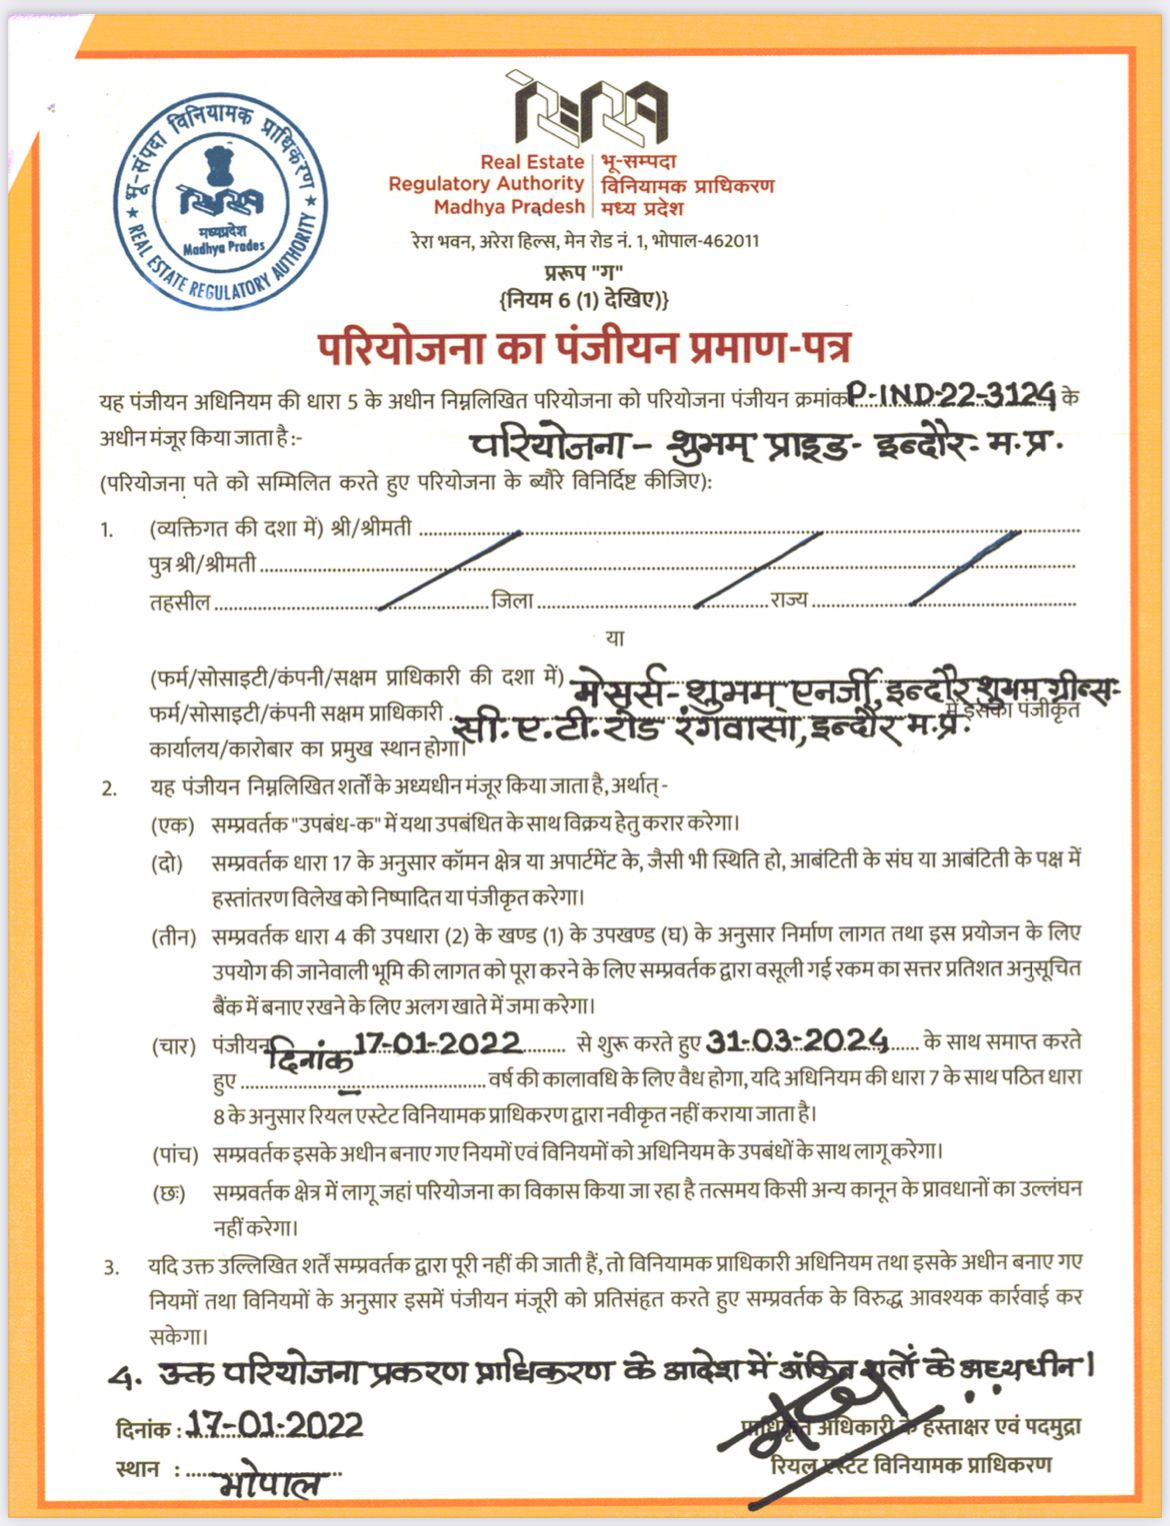 भू-संपदा विनियामक प्राधिकरण
RERA
मध्यप्रदेश
Madhya Prades
REAL ESTATE REGULATORY AUTHORITY
RERA
Real Estate भू-सम्पदा
Regulatory Authority विनियामक प्राधिकरण
Madhya Pradesh मध्य प्रदेश
रेरा भवन, अरेरा हिल्स, मेन रोड नं. 1, भोपाल-462011
प्ररूप "ग"
{नियम 6 (1) देखिए)}
परियोजना का पंजीयन प्रमाण-पत्र
यह पंजीयन अधिनियम की धारा 5 के अधीन निम्नलिखित परियोजना को परियोजना पंजीयन क्रमांक P-IND-22-3124 के
अधीन मंजूर किया जाता है :- परियोजना - शुभम् प्राइड- इन्दौर- म.प्र.
(परियोजना पते को सम्मिलित करते हुए परियोजना के ब्यौरे विनिर्दिष्ट कीजिए):
1. (व्यक्तिगत की दशा में) श्री/श्रीमती
पुत्र श्री/श्रीमती
तहसील जिला राज्य
या
(फर्म/सोसाइटी/कंपनी/सक्षम प्राधिकारी की दशा में) मेसर्स-शुभम् एनर्जी, इन्दौर, शुभम् ग्रीन्स-
फर्म/सोसाइटी/कंपनी सक्षम प्राधिकारी सी.ए.टी. रोड रंगवासा, इन्दौर म.प्र. में इसका पंजीकृत
कार्यालय/कारोबार का प्रमुख स्थान होगा।
2. यह पंजीयन निम्नलिखित शर्तों के अध्यधीन मंजूर किया जाता है, अर्थात् -
(एक) सम्प्रवर्तक "उपबंध-क" में यथा उपबंधित के साथ विक्रय हेतु करार करेगा।
(दो) सम्प्रवर्तक धारा 17 के अनुसार कॉमन क्षेत्र या अपार्टमेंट के, जैसी भी स्थिति हो, आबंटिती के संघ या आबंटिती के पक्ष में
हस्तांतरण विलेख को निष्पादित या पंजीकृत करेगा।
(तीन) सम्प्रवर्तक धारा 4 की उपधारा (2) के खण्ड (1) के उपखण्ड (घ) के अनुसार निर्माण लागत तथा इस प्रयोजन के लिए
उपयोग की जानेवाली भूमि की लागत को पूरा करने के लिए सम्प्रवर्तक द्वारा वसूली गई रकम का सत्तर प्रतिशत अनुसूचित
बैंक में बनाए रखने के लिए अलग खाते में जमा करेगा।
(चार) पंजीयन दिनांक 17-01-2022 से शुरू करते हुए 31-03-2024 के साथ समाप्त करते
हुए वर्ष की कालावधि के लिए वैध होगा, यदि अधिनियम की धारा 7 के साथ पठित धारा
8 के अनुसार रियल एस्टेट विनियामक प्राधिकरण द्वारा नवीकृत नहीं कराया जाता है।
(पांच) सम्प्रवर्तक इसके अधीन बनाए गए नियमों एवं विनियमों को अधिनियम के उपबंधों के साथ लागू करेगा।
(छः) सम्प्रवर्तक क्षेत्र में लागू जहां परियोजना का विकास किया जा रहा है तत्समय किसी अन्य कानून के प्रावधानों का उल्लंघन
नहीं करेगा।
3. यदि उक्त उल्लिखित शर्ते सम्प्रवर्तक द्वारा पूरी नहीं की जाती हैं, तो विनियामक प्राधिकारी अधिनियम तथा इसके अधीन बनाए गए
नियमों तथा विनियमों के अनुसार इसमें पंजीयन मंजूरी को प्रतिसंहृत करते हुए सम्प्रवर्तक के विरुद्ध आवश्यक कार्रवाई कर
सकेगा।
4. उक्त परियोजना प्रकरण प्राधिकरण के आदेश में अंकित शर्तों के अध्यधीन।
दिनांक : 17-01-2022 प्राधिकृत अधिकारी के हस्ताक्षर एवं पदमुद्रा
स्थान : भोपाल रियल एस्टेट विनियामक प्राधिकरण